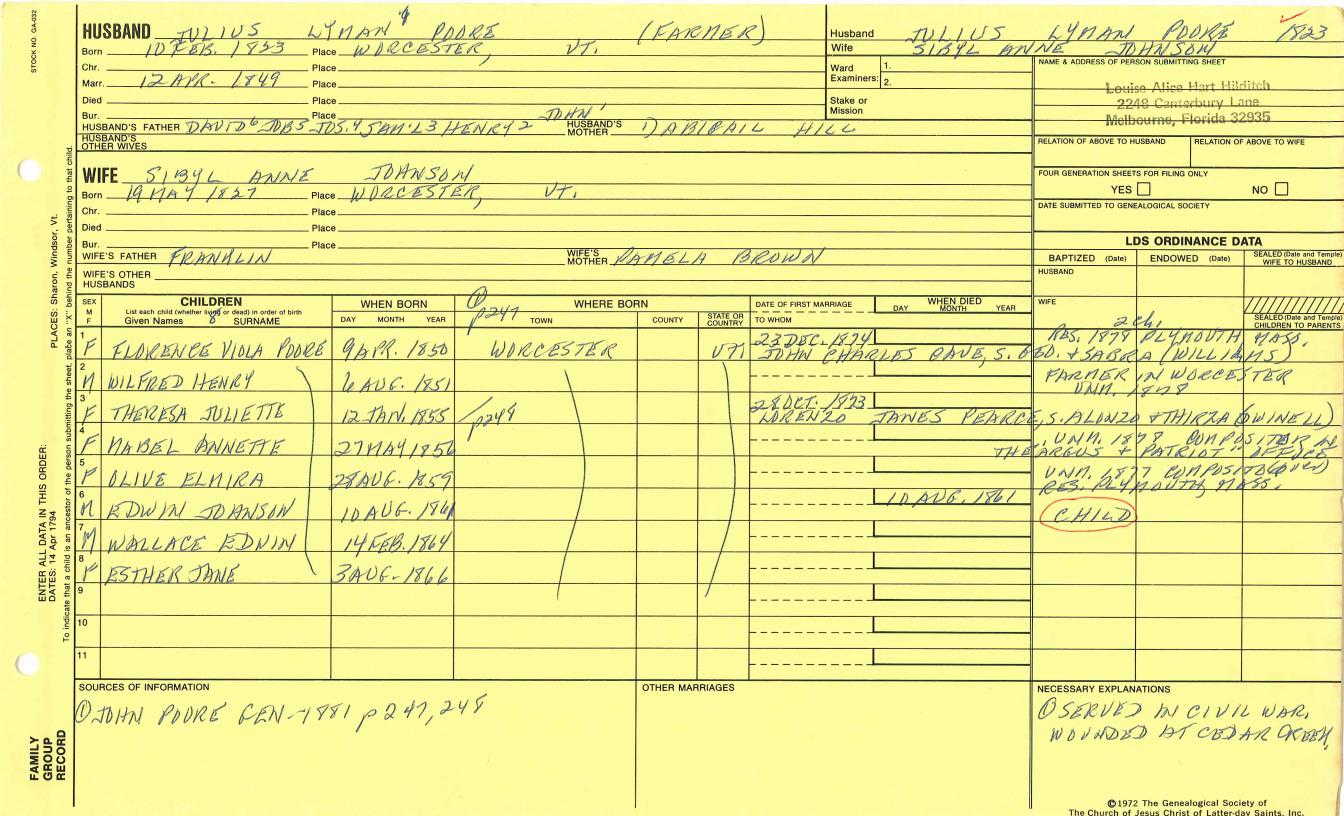 STOCK NO. GA-032
HUSBAND JULIUS LYMAN POORE (FARMER)
Born 10 FEB. 1823 Place WORCESTER, VT.
Chr. Place
Marr. 12 APR. 1849 Place
Died Place
Bur. Place
HUSBAND'S FATHER DAVID 6 JOB 5 JOS. 4 SAM'L 3 HENRY 2 JOHN 1 HUSBAND'S MOTHER 1) ABIGAIL HILL
HUSBAND'S OTHER WIVES
WIFE SIBYL ANNE JOHNSON
Born 19 MAY 1827 Place WORCESTER, VT.
Chr. Place
Died Place
Bur. Place
WIFE'S FATHER FRANKLIN WIFE'S MOTHER PAMELA BROWN
WIFE'S OTHER HUSBANDS
Husband JULIUS LYMAN POORE 1823
Wife SIBYL ANNE JOHNSON
Ward Examiners: 1.
2.
Stake or Mission
NAME & ADDRESS OF PERSON SUBMITTING SHEET
Louise Alice Hart Hilditch
2248 Canterbury Lane
Melbourne, Florida 32935
RELATION OF ABOVE TO HUSBAND RELATION OF ABOVE TO WIFE
FOUR GENERATION SHEETS FOR FILING ONLY
YES NO
DATE SUBMITTED TO GENEALOGICAL SOCIETY
LDS ORDINANCE DATA
BAPTIZED (Date) ENDOWED (Date) SEALED (Date and Temple) WIFE TO HUSBAND
HUSBAND
WIFE
SEALED (Date and Temple) CHILDREN TO PARENTS
SEX M F
CHILDREN
List each child (whether living or dead) in order of birth
Given Names 8 SURNAME
WHEN BORN
DAY MONTH YEAR
① p247
WHERE BORN
TOWN COUNTY STATE OR COUNTRY
DATE OF FIRST MARRIAGE
TO WHOM
WHEN DIED
DAY MONTH YEAR
2 ch.
1 F FLORENCE VIOLA POORE 9 APR. 1850 WORCESTER VT. 23 DEC. 1874 RES. 1878 PLYMOUTH MASS.
JOHN CHARLES CAVE, S. GEO. + SABRA (WILLIAMS)
2 M WILFRED HENRY 6 AUG. 1851 FARMER IN WORCESTER
UNM. 1878
3 F THERESA JULIETTE 12 JAN. 1855 p248 28 OCT. 1873
LORENZO JAMES PEARCE, S. ALONZO + THIRZA (DWINELL)
4 F MABEL ANNETTE 27 MAY 1856 UNM. 1878 COMPOSITOR IN
THE "ARGUS + PATRIOT" OFFICE
5 F OLIVE ELMIRA 28 AUG. 1859 UNM. 1877 COMPOSITOR
RES. PLYMOUTH, MASS.
6 M EDWIN JOHNSON 10 AUG. 1861 10 AUG. 1861 CHILD
7 M WALLACE EDWIN 14 FEB. 1864
8 F ESTHER JANE 3 AUG. 1866
9
10
11
SOURCES OF INFORMATION
① JOHN POORE GEN-1881 p247, 248
OTHER MARRIAGES
NECESSARY EXPLANATIONS
① SERVED IN CIVIL WAR,
WOUNDED AT CEDAR CREEK.
©1972 The Genealogical Society of
The Church of Jesus Christ of Latter-day Saints, Inc.
FAMILY GROUP RECORD
ENTER ALL DATA IN THIS ORDER:
DATES: 14 Apr 1794 PLACES: Sharon, Windsor, Vt.
To indicate that a child is an ancestor of the person submitting the sheet, place an "X" behind the number pertaining to that child.